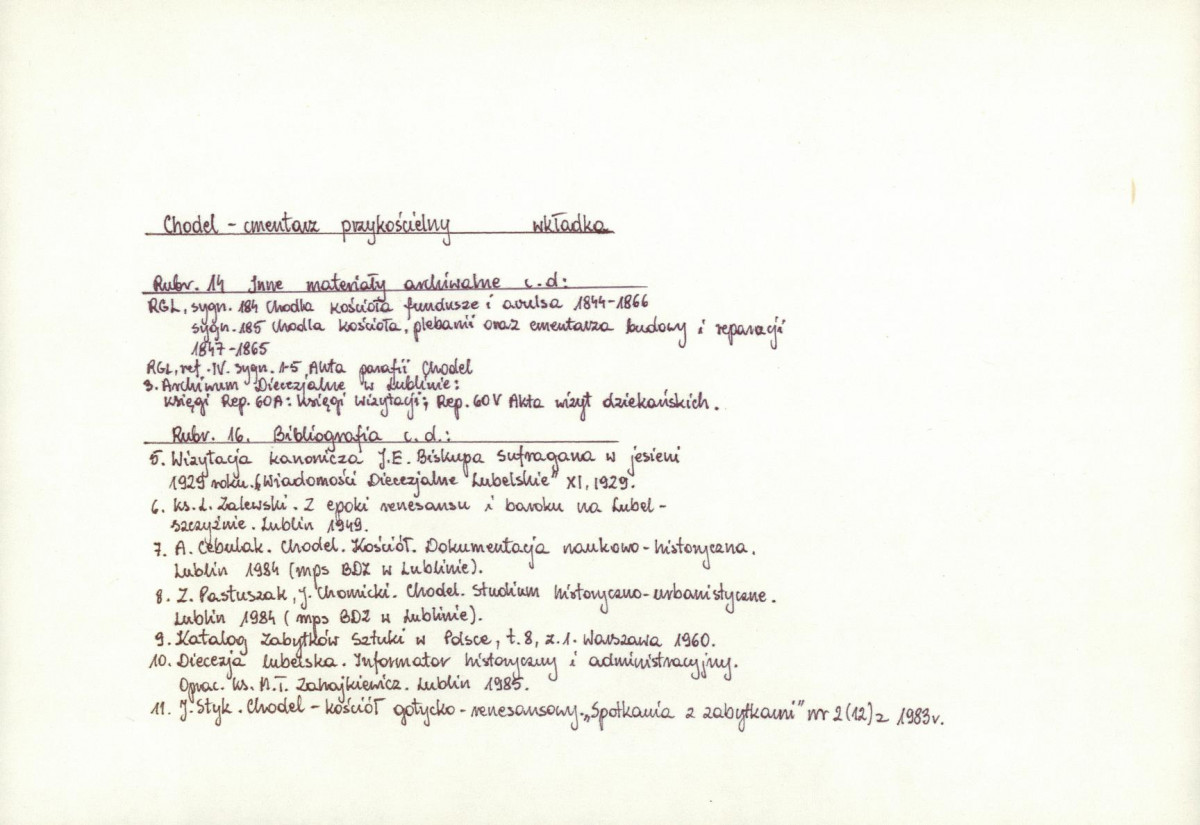 Chodel - cmentarz przykościelny wkładka
Rubr. 14 Inne materiały archiwalne c.d:
RGL, sygn. 184 Chodla kościoła fundusze i avulsa 1844-1866
sygn. 185 Chodla kościoła, plebanii oraz cmentarza budowy i reparacji
1847-1865
RGL, ref. IV. sygn. 1-5 Akta parafii Chodel
3. Archiwum Diecezjalne w Lublinie:
Księgi Rep. 60A: Księgi Wizytacji; Rep. 60V Akta wizyt dziekańskich.
Rubr. 16. Bibliografia c.d.:
5. Wizytacja kanonicza J.E. Biskupa Sufragana w jesieni
1929 roku. „Wiadomości Diecezjalne Lubelskie" XI, 1929.
6. ks. L. Zalewski. Z epoki renesansu i baroku na Lubel-
szczyźnie. Lublin 1949.
7. A. Cebulak. Chodel. Kościół. Dokumentacja naukowo-historyczna.
Lublin 1984 (mps BDZ w Lublinie).
8. Z. Pastuszak, J. Chomicki. Chodel. Studium historyczno-urbanistyczne.
Lublin 1984 (mps BDZ w Lublinie).
9. Katalog Zabytków Sztuki w Polsce, t. 8, z. 1. Warszawa 1960.
10. Diecezja lubelska. Informator historyczny i administracyjny.
Oprac. ks. M.T. Zahajkiewicz. Lublin 1985.
11. J. Styk. Chodel - kościół gotycko-renesansowy. „Spotkania z zabytkami" nr 2(12) z 1983r.